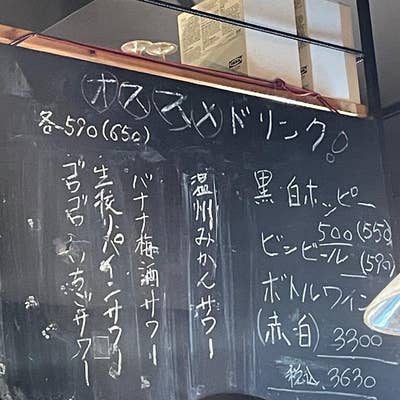 オススメドリンク
各-590(650)
黒・白ホッピー
500(550)
ビンビール
(590)
ボトルワイン
(赤・白) 3300
税込 3630
温州みかんサワー
バナナ梅酒サワー
生搾りパインサワー
ゴロゴロいちごサワー